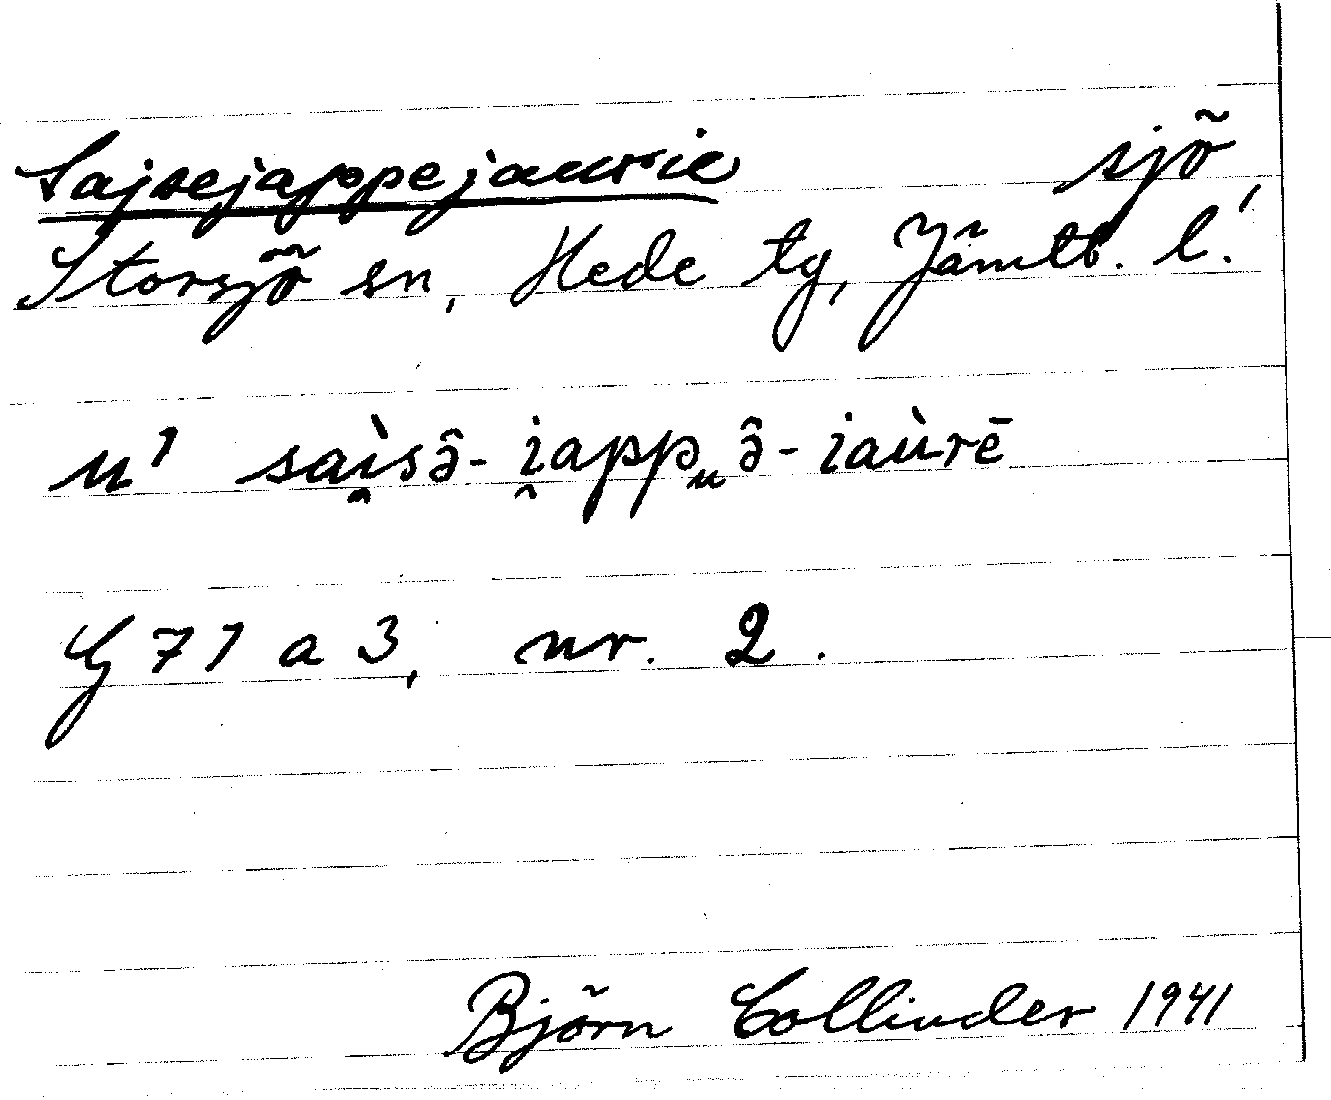 Sajsejappejaurie sjö,
Storsjö sn, Hede tg, Jämtl. l.
u' saì̯sə̂- i̯appᵤə̂-iaùrē
G 71 a 3, nr. 2.
Björn Collinder 1941